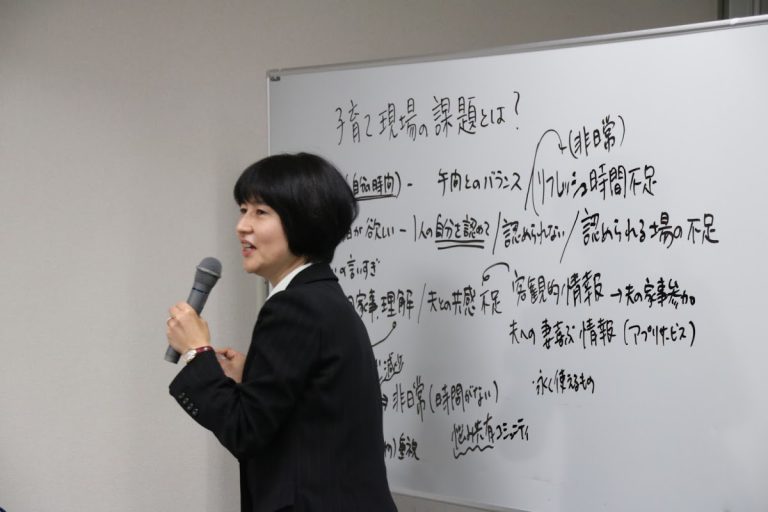 子育て現場の課題とは?
(非日常)
(自分の時間) - 仲間とのバランス リフレッシュ時間不足
が欲しい - 1人の自分を認めて/認められない/認められる場の不足
の言いすぎ
家事理解/夫との共感不足 客観的情報 → 夫の家事参加
夫への妻喜ぶ情報(アプリサービス)
減少
・永く使えるもの
非日常(時間がない)
重視 悩み共有コミュニティ